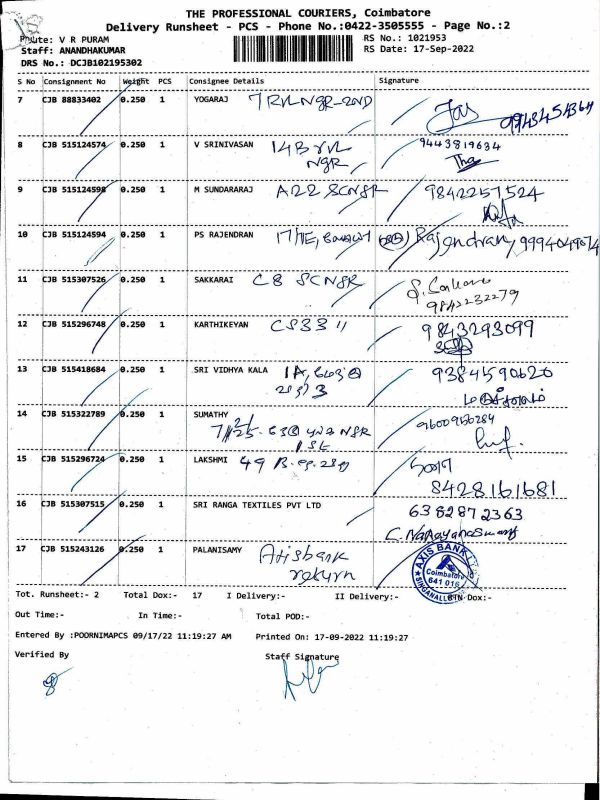 THE PROFESSIONAL COURIERS, Coimbatore
Delivery Runsheet - PCS - Phone No.:0422-3505555 - Page No.:2
Route: V R PURAM
RS No.: 1021953
Staff: ANANDHAKUMAR
RS Date: 17-Sep-2022
DRS No.: DCJB102195302
S No Consignment No Weight PCS Consignee Details Signature
7 CJB 88833402 0.250 1 YOGARAJ
8 CJB 515124574 0.250 1 V SRINIVASAN 14B
9443819634
NGR
9 CJB 515124598 0.250 1 M SUNDARARAJ A22 SCNGR 9842257524
10 CJB 515124594 0.250 1 PS RAJENDRAN 17/1E, Rajendran,
11 CJB 515307526 0.250 1 SAKKARAI C8 SCNGR
9842232279
12 CJB 515296748 0.250 1 KARTHIKEYAN CS33 11 9843293099
13 CJB 515418684 0.250 1 SRI VIDHYA KALA 1A, 9384590620
3
14 CJB 515322789 0.250 1 SUMATHY
15 CJB 515296724 0.250 1 LAKSHMI 49
8428161681
16 CJB 515307515 0.250 1 SRI RANGA TEXTILES PVT LTD 6382872363
C. Narayanaswamy
17 CJB 515243126 0.250 1 PALANISAMY Axisbank
return
AXIS BANK
Coimbatore
641 015
SINGANALLUR
Tot. Runsheet:- 2 Total Dox:- 17 I Delivery:- II Delivery:- RTN Dox:-
Out Time:- In Time:- Total POD:-
Entered By :POORNIMAPCS 09/17/22 11:19:27 AM Printed On: 17-09-2022 11:19:27
Verified By Staff Signature